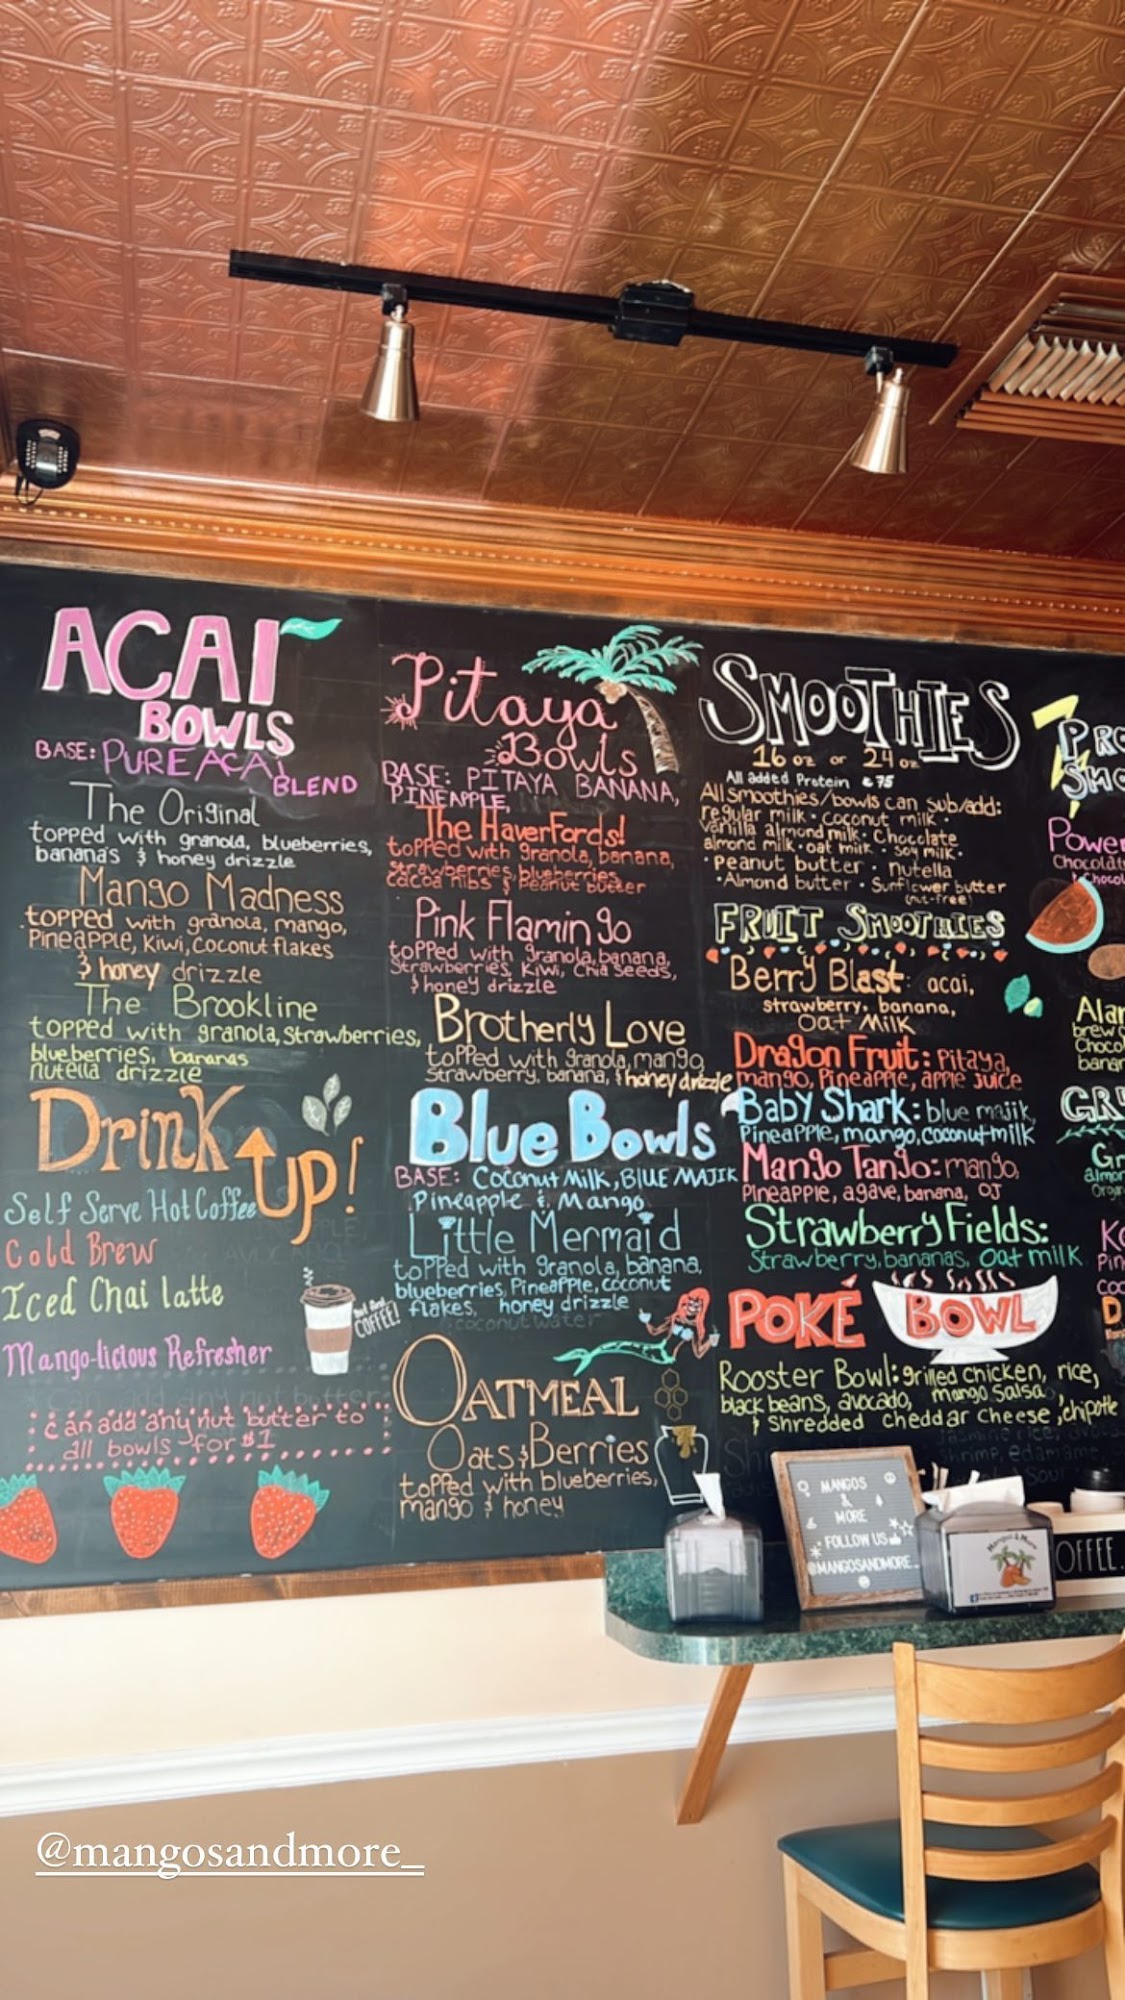 ACAI
BOWLS
BASE: PURE ACAI
BLEND
The Original
topped with granola, blueberries,
bananas & honey drizzle
Mango Madness
topped with granola, mango,
Pineapple, Kiwi, coconut flakes
& honey drizzle
The Brookline
topped with granola, strawberries,
blueberries, bananas
nutella drizzle
Drink
UP!
Self Serve Hot Coffee
Cold Brew
Iced Chai latte
Mango-licious Refresher
COFFEE!
can add any nut butter to
all bowls for $1
Pitaya
Bowls
BASE: PITAYA BANANA,
PINEAPPLE,
The HaverFords!
topped with granola, banana,
strawberries, blueberries,
cacao nibs & Peanut butter
Pink Flamingo
topped with granola, banana,
strawberries, Kiwi, Chia seeds,
& honey drizzle
Brotherly Love
topped with granola, mango,
strawberry, banana, & honey drizzle
Blue Bowls
BASE: Coconut Milk, BLUE MAJIK
Pineapple & Mango
Little Mermaid
topped with granola, banana,
blueberries, Pineapple, coconut
flakes, honey drizzle
coconut water
OATMEAL
Oats & Berries
topped with blueberries,
mango & honey
SMOOTHIES
16 oz or 24 oz
All added Protein .75
All smoothies/bowls can sub/add:
regular milk · coconut milk ·
vanilla almond milk · Chocolate
almond milk · oat milk · soy milk ·
· Peanut butter · nutella
· Almond butter · Sunflower butter
(nut-free)
FRUIT SMOOTHIES
Berry Blast: acai,
strawberry, banana,
oat Milk
Dragon Fruit: Pitaya,
mango, Pineapple, apple juice
Baby Shark: blue majik,
Pineapple, mango, coconut milk
Mango Tango: mango,
Pineapple, agave, banana, OJ
Strawberry Fields:
Strawberry, bananas, oat milk
POKÉ BOWL
Rooster Bowl: grilled chicken, rice,
black beans, avocado, mango salsa
& shredded cheddar cheese, chipotle
MANGOS
&
MORE
FOLLOW US
@MANGOSANDMORE_
Mangos & More
OFFEE
@mangosandmore_